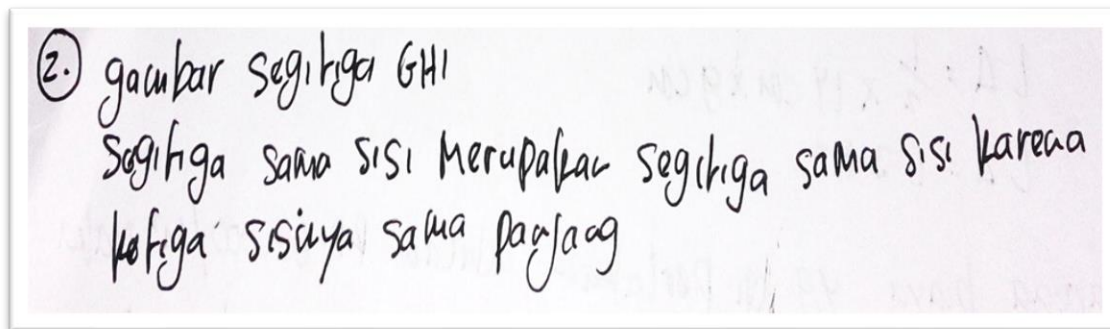 2. gambar segitiga GHI
Segitiga sama sisi Merupakan segitiga sama sisi karena
ketiga sisinya sama panjang